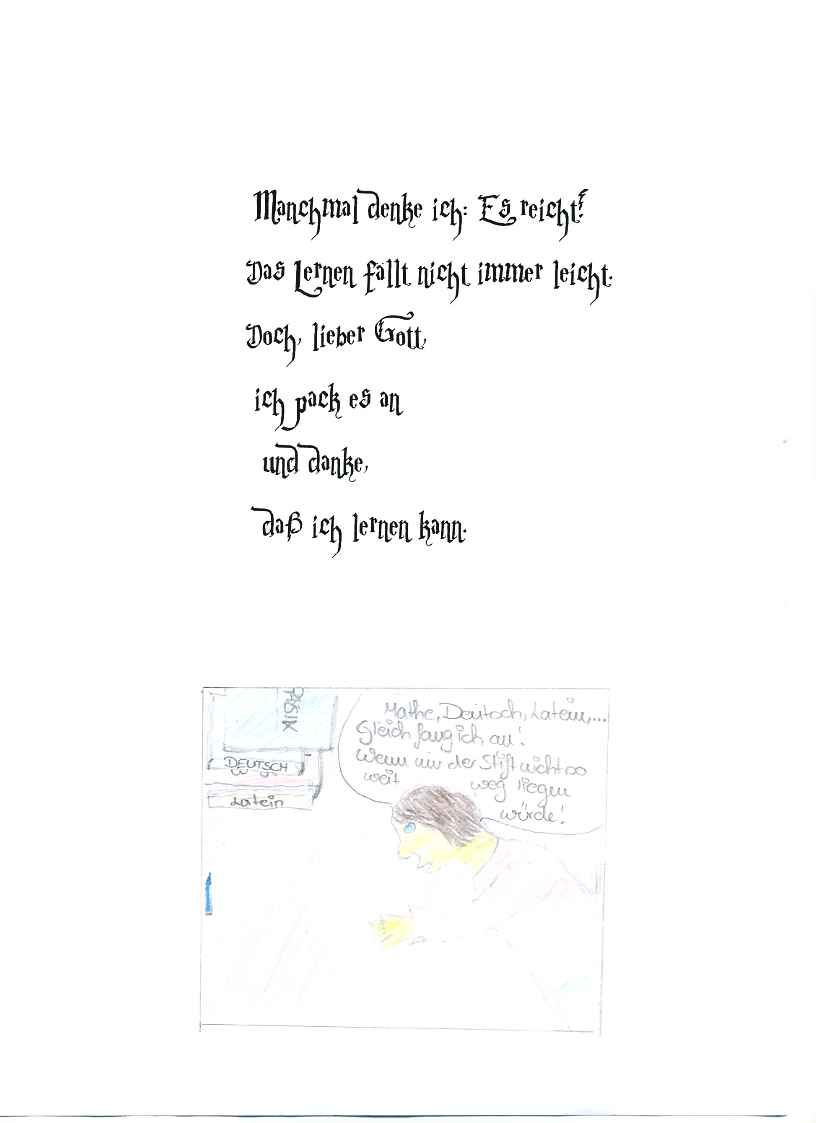 Manchmal denke ich: Es reicht!
Das Lernen fällt nicht immer leicht.
Doch, lieber Gott,
ich pack es an
und danke,
daß ich lernen kann.
Mathe, Deutsch, Latein,...
Gleich fang ich an!
Wenn mir der Stift nicht so
weit weg liegen
würde!
DEUTSCH
Latein